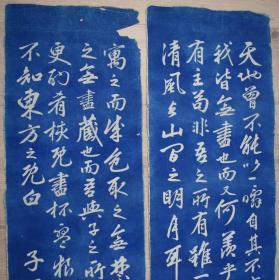 天地曾不能以一瞬自其不
我皆無盡也而又何羨乎
有主苟非吾之所有雖一
清風與山間之明月耳
寓之而成色取之無禁
之無盡藏也而吾與子之所
更酌肴核既盡杯盤狼
不知東方之既白 子